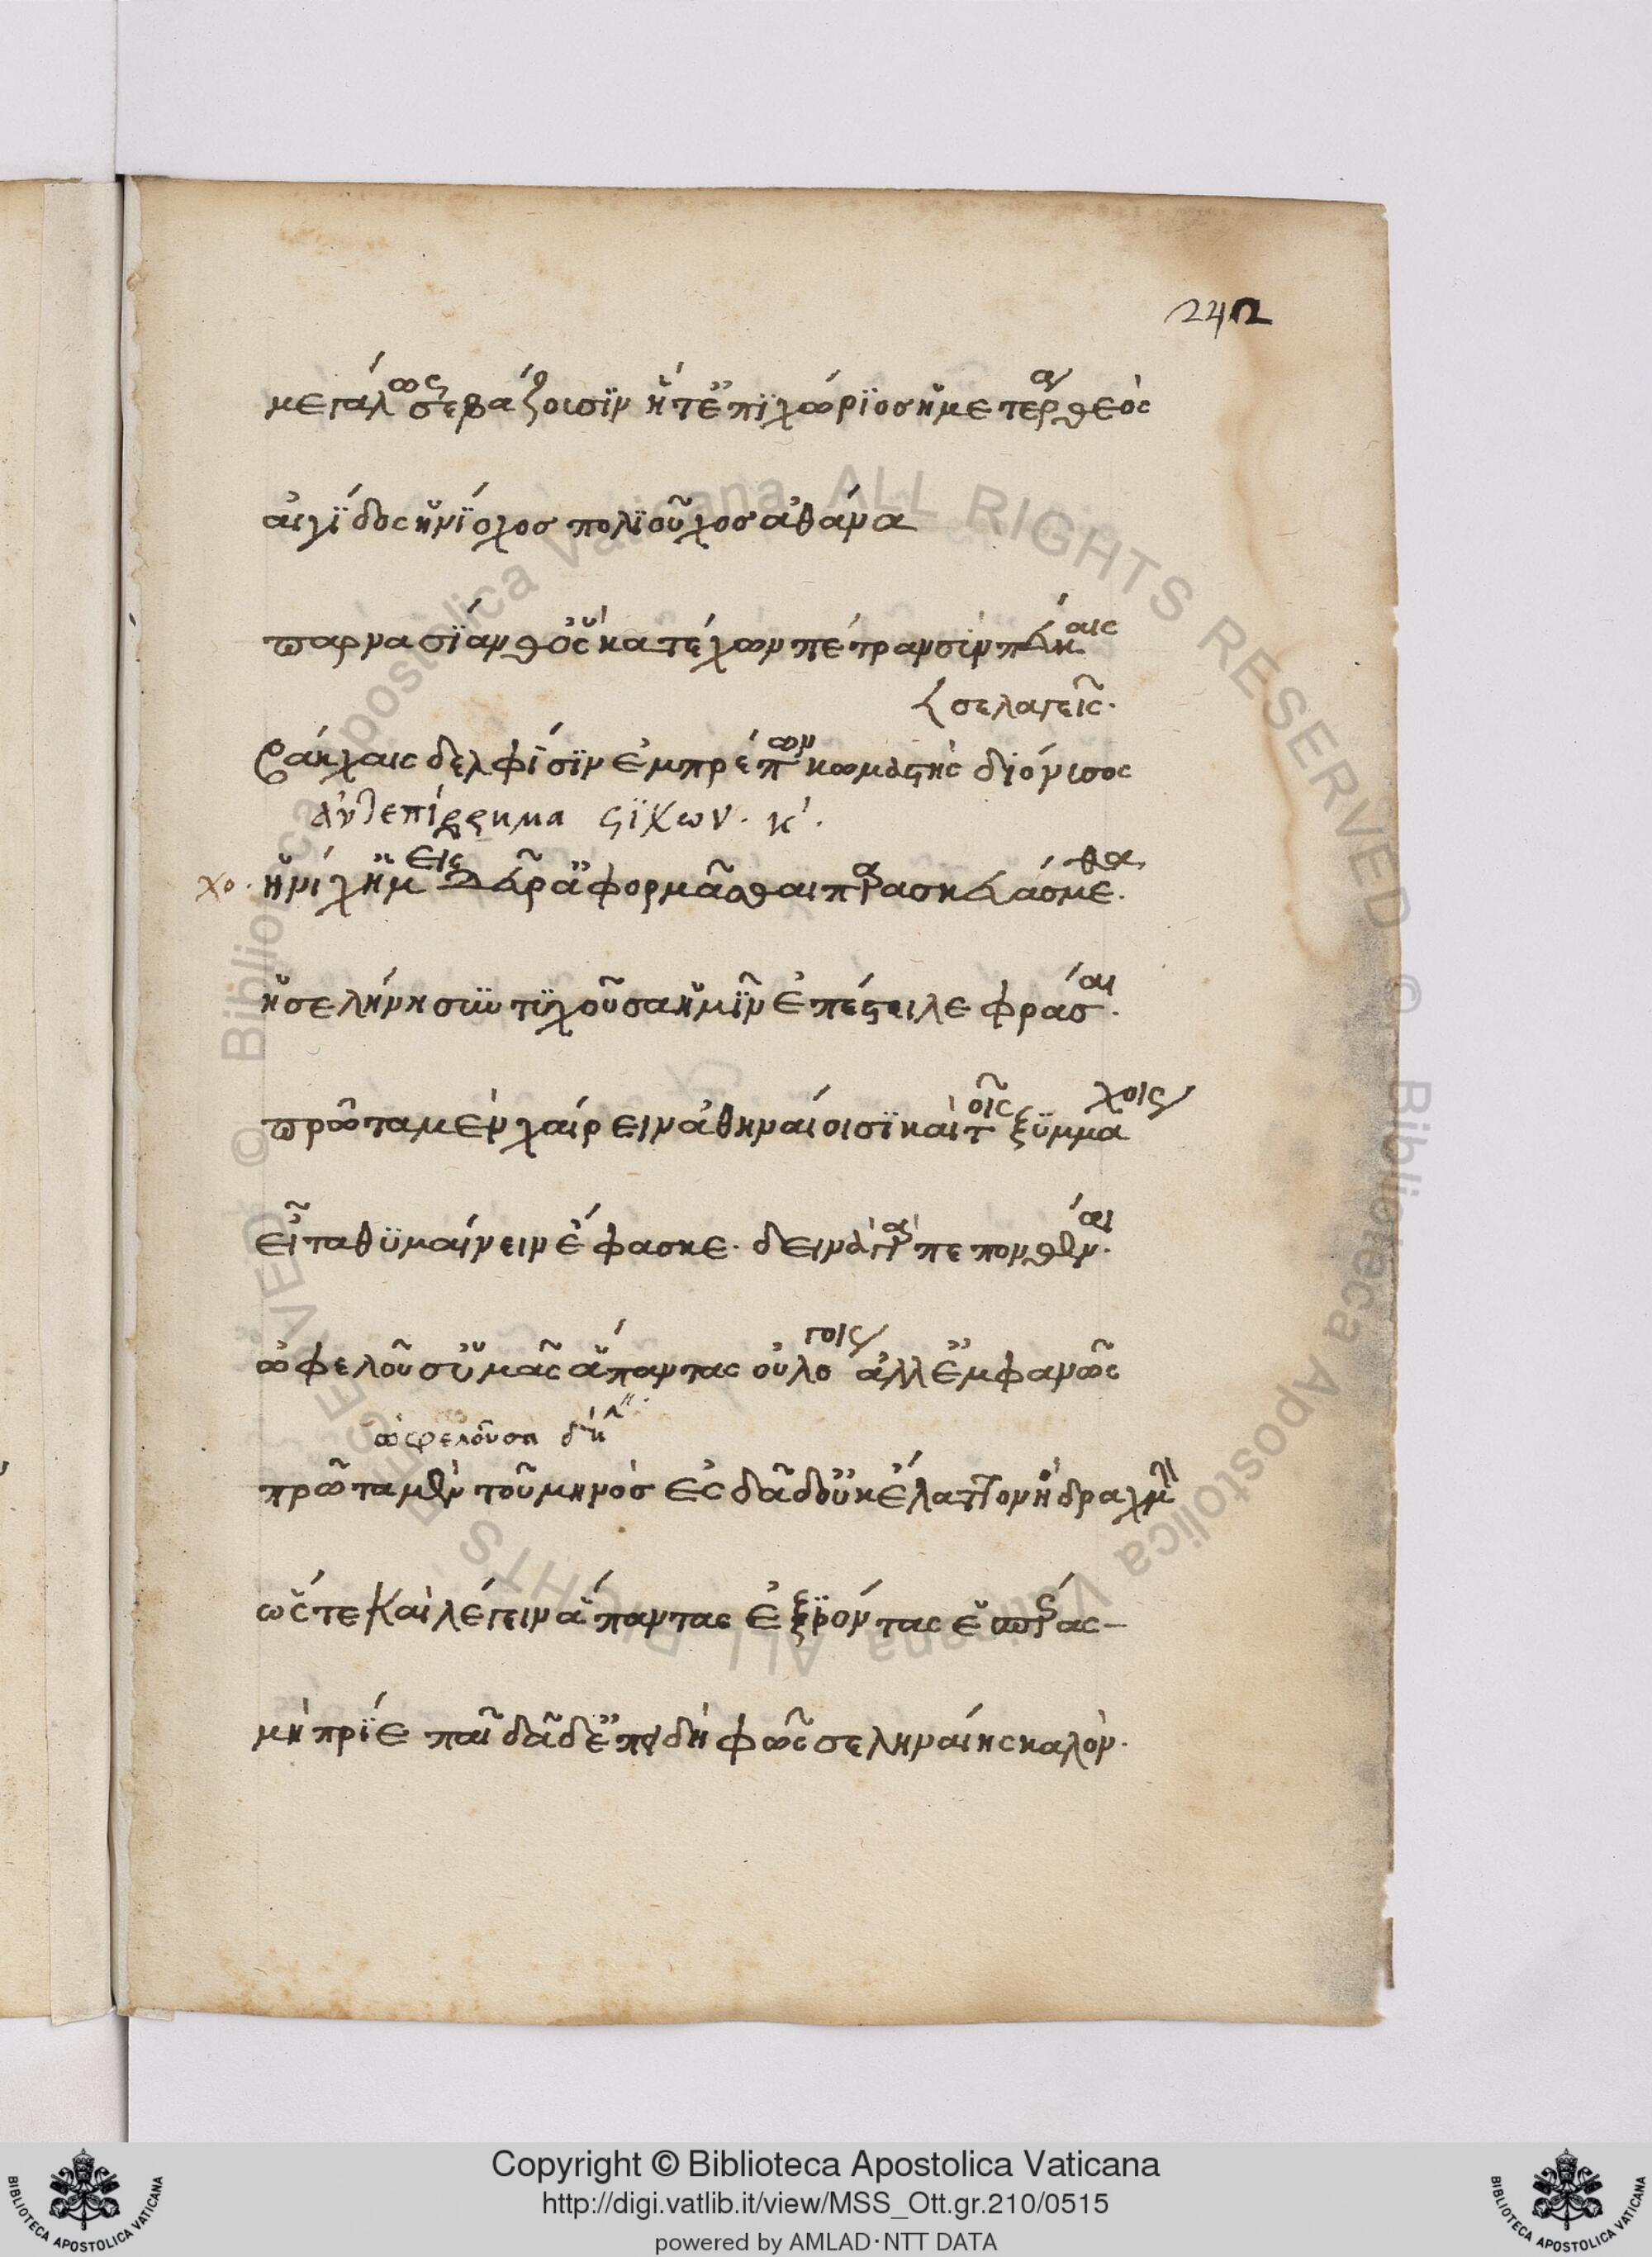 242
μεγάλως σεβάζουσϊν ἥ τ' ἐπϊχώρϊος ἡμετέρα θεὸς
αἰγίδος ἡνϊόχος πολϊοῦχος ἀθάνα
παρνασΐαν θ' ὃς κατέχων πέτραν σὺν πεύκαις
σελαγεῖς.
βάκχαις δελφίσϊν ἐμπρέπων κωμαστὴς διόνισος
ἀντεπίρρημα στίχων. κ'.
χο. ἡνίχ' ἡμεῖς δεῦρ' ἀφορμᾶσθαι παρασκευάσμεθα.
ἡ σελήνη συντυχοῦσ' ἡμῖν ἐπέστειλε φράσαι.
πρῶτα μὲν χαίρειν ἀθηναίοισι καὶ τοῖς ξυμμάχοις
εἶτα θυμαίνειν ἔφασκε. δεινὰ γὰρ πεπονθέναι.
ὠφελοῦσ' ὑμᾶς ἅπαντας οὐ λόγοις ἀλλ' ἐμφανῶς
ὠφελοῦσα δη
πρῶτα μὲν τοῦ μηνὸς ἐς δᾷδ' οὐκ ἔλαττον ἢ δραχμὴν
ὥστε καὶ λέγειν ἅπαντας ἐξϊόντας ἑσπέρας
μὴ πρίε παῖ δᾷδ' ἐπειδὴ φῶς σεληναίης καλόν.
Copyright © Biblioteca Apostolica Vaticana
http://digi.vatlib.it/view/MSS_Ott.gr.210/0515
powered by AMLAD·NTT DATA